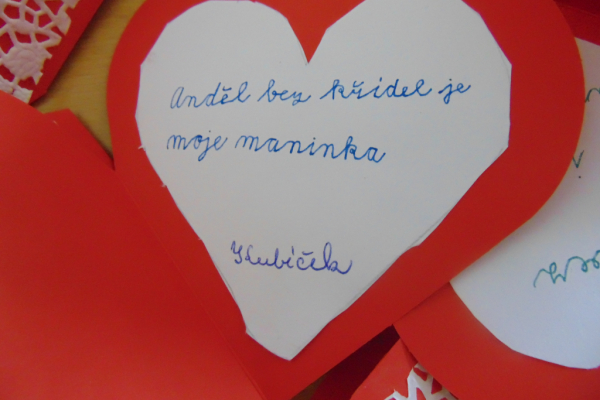 Anděl bez křídel je
moje maninka
Kubíček